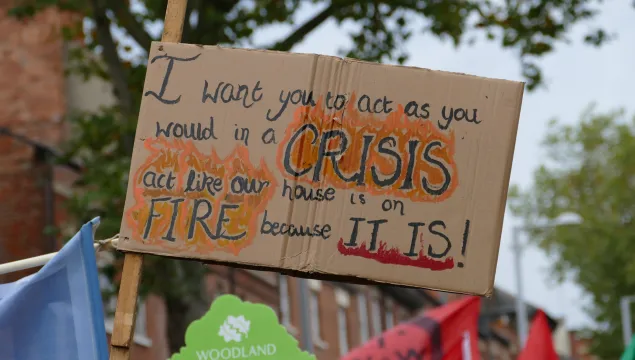 I want you to act as you
would in a CRISIS
act like our house is on
FIRE because IT IS!
WOODLAND